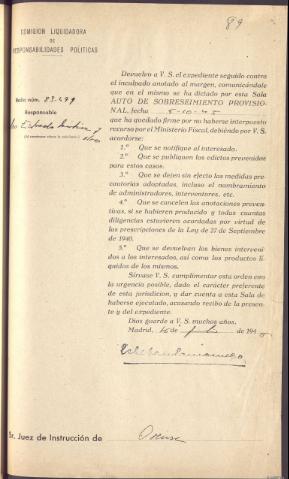 89
COMISION LIQUIDADORA
DE
RESPONSABILIDADES POLITICAS
Devuelvo a V. S. el expediente seguido contra
el inculpado anotado al margen, comunicándole
que en el mismo se ha dictado por esta Sala
AUTO DE SOBRESEIMIENTO PROVISIO-
NAL, fecha 5-10-45
que ha quedado firme por no haberse interpuesto
recurso por el Ministerio Fiscal, debiendo por V. S.
acordarse:
1.º Que se notifique al interesado.
2.º Que se publiquen los edictos prevenidos
para estos casos.
3.º Que se dejen sin efecto las medidas pre-
cautorias adoptadas, incluso el nombramiento
de administradores, interventores, etc.
4.º Que se cancelen las anotaciones preven-
tivas, si se hubieren producido y todas cuantas
diligencias estuvieren acordadas por virtud de
las prescripciones de la Ley de 27 de Septiembre
de 1940.
5.º Que se devuelvan los bienes intervenidos
a los interesados, así como los productos lí-
quidos de los mismos.
Sírvase V. S. cumplimentar esta orden con
la urgencia posible, dado el carácter preferente
de esta jurisdicción, y dar cuenta a esta Sala de
haberse ejecutado, acusando recibo de la presen-
te y del expediente.
Dios guarde a V. S. muchos años.
Madrid, de de 194
núm.
Responsable
Sr. Juez de Instrucción de Orense